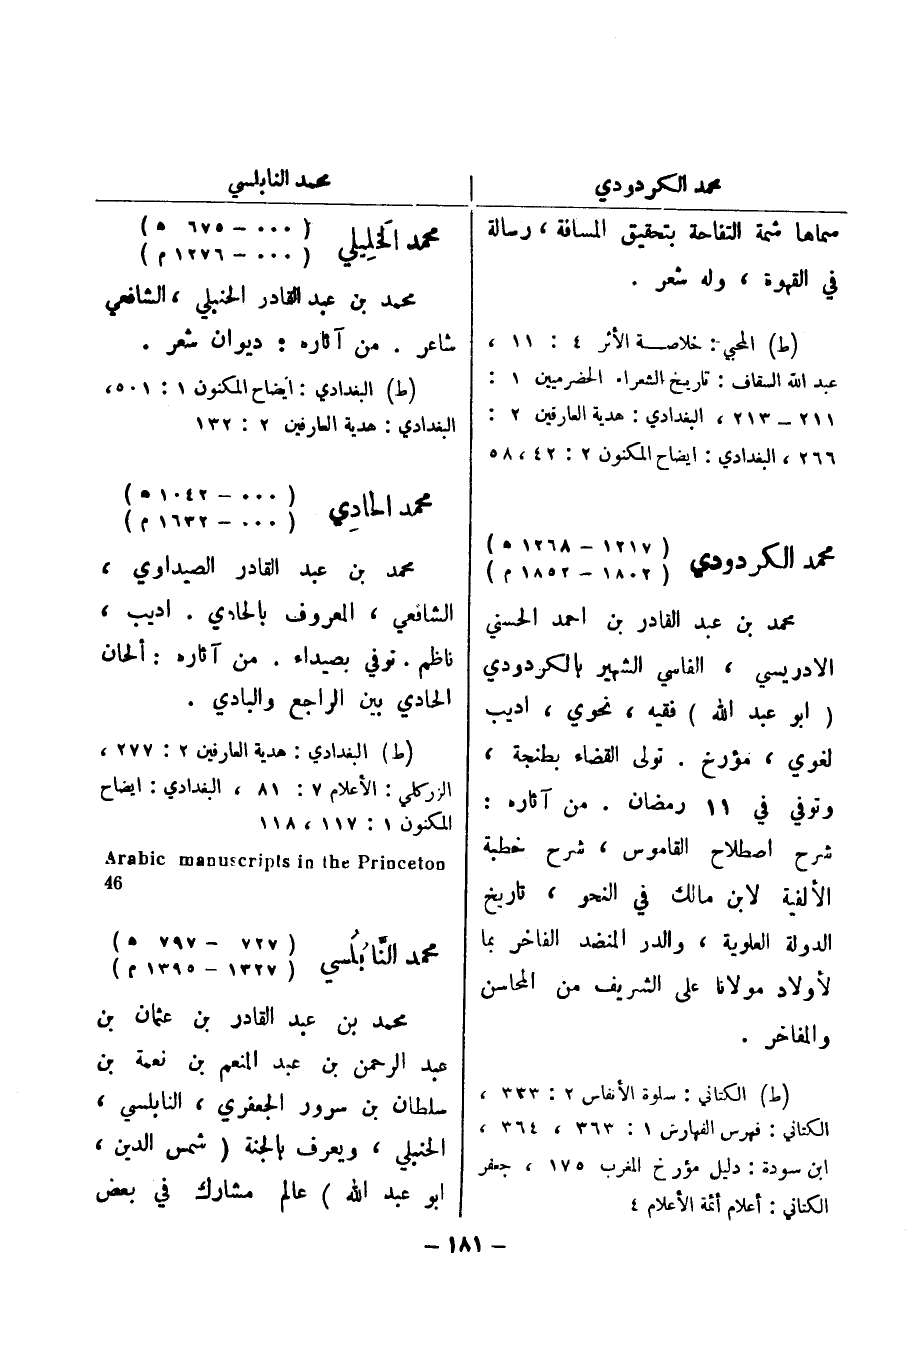 محمد الكردودي
محمد النابلسي
سماها شمة التفاحة بتحقيق المسافة ، رسالة
في القهوة ، وله شعر .
(ط) المحبي : خلاصة الأثر ٤ : ١١ ،
عبد الله السقاف : تاريخ الشعراء الحضرميين ١ :
٢١١ – ٢١٣ ، البغدادي : هدية العارفين ٢ :
٢٦٦ ، البغدادي : ايضاح المكنون ٢ : ٤٢ ، ٥٨
محمد الكردودي ( ١٢١٧ – ١٢٦٨ ه )
( ١٨٠٢ – ١٨٥٢ م )
محمد بن عبد القادر بن احمد الحسني
الادريسي ، الفاسي الشهير بالكردودي
( ابو عبد الله ) فقيه ، نحوي ، اديب
لغوي ، مؤرخ . تولى القضاء بطنجة ،
وتوفي في ١١ رمضان . من آثاره :
شرح اصطلاح القاموس ، شرح خطبة
الألفية لابن مالك في النحو ، تاريخ
الدولة العلوية ، والدر المنضد الفاخر بما
لأولاد مولانا على الشريف من المحاسن
والمفاخر .
(ط) الكتاني : سلوة الأنفاس ٢ : ٣٣٣ ،
الكتاني : فهرس الفهارس ١ : ٣٦٣ ، ٣٦٤ ،
ابن سودة : دليل مؤرخ المغرب ١٧٥ ، جعفر
الكتاني : أعلام أئمة الأعلام ٤
محمد الخَلِيلي ( ٠٠٠ – ٦٧٥ ه )
( ٠٠٠ – ١٢٧٦ م )
محمد بن عبد القادر الحنبلي ، الشافعي
شاعر . من آثاره : ديوان شعر .
(ط) البغدادي : ايضاح المكنون ١ : ٥٠١ ،
البغدادي : هدية العارفين ٢ : ١٣٢
محمد الحادِي ( ٠٠٠ – ١٠٤٢ ه )
( ٠٠٠ – ١٦٣٢ م )
محمد بن عبد القادر الصيداوي ،
الشافعي ، المعروف بالحادي . اديب ،
ناظم . توفي بصيداء . من آثاره : ألحان
الحادي بين الراجع والبادي .
(ط) البغدادي : هدية العارفين ٢ : ٢٧٧ ،
الزركلي : الأعلام ٧ : ٨١ ، البغدادي : ايضاح
المكنون ١ : ١١٧ ، ١١٨
Arabic manuscripts in the Princeton
46
محمد النَّابُلُسي ( ٧٢٧ – ٧٩٧ ه )
( ١٣٢٧ – ١٣٩٥ م )
محمد بن عبد القادر بن عثمان بن
عبد الرحمن بن عبد المنعم بن نعمة بن
سلطان بن سرور الجعفري ، النابلسي ،
الحنبلي ، ويعرف بالجنة ( شمس الدين ،
ابو عبد الله ) عالم مشارك في بعض
– ١٨١ –